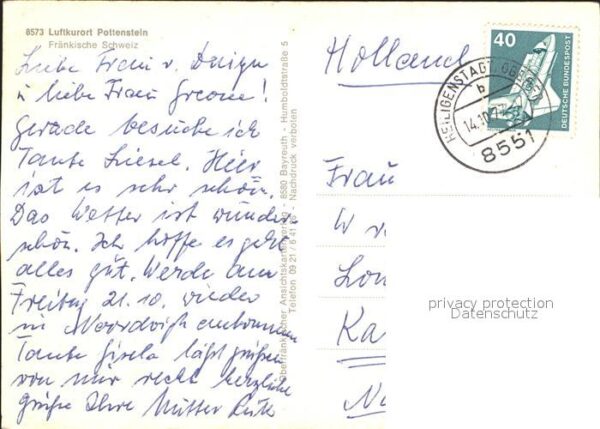 8573 Luftkurort Pottenstein
Fränkische Schweiz
Liebe Frau v.
u liebe Frau Greone!
Gerade besuche ich
Tante Liesel. Hier
ist es sehr schön.
Das Wetter ist wunder
schön. Ich hoffe es geht
alles gut. Werde am
Freitag 21.10. wieder
in Noordwijk ankommen
Tante Gisela läßt grüßen
von mir recht herzliche
Grüße Ihre Mutter Ruth
Oberfränkischer Ansichtskartenverlag - 8580 Bayreuth - Humboldtstraße 5
Nachdruck verboten
Holland
40
DEUTSCHE BUNDESPOST
HEILIGENSTADT
b
14.10.
8551
Frau
W v
Lon
Ka
privacy protection
Datenschutz